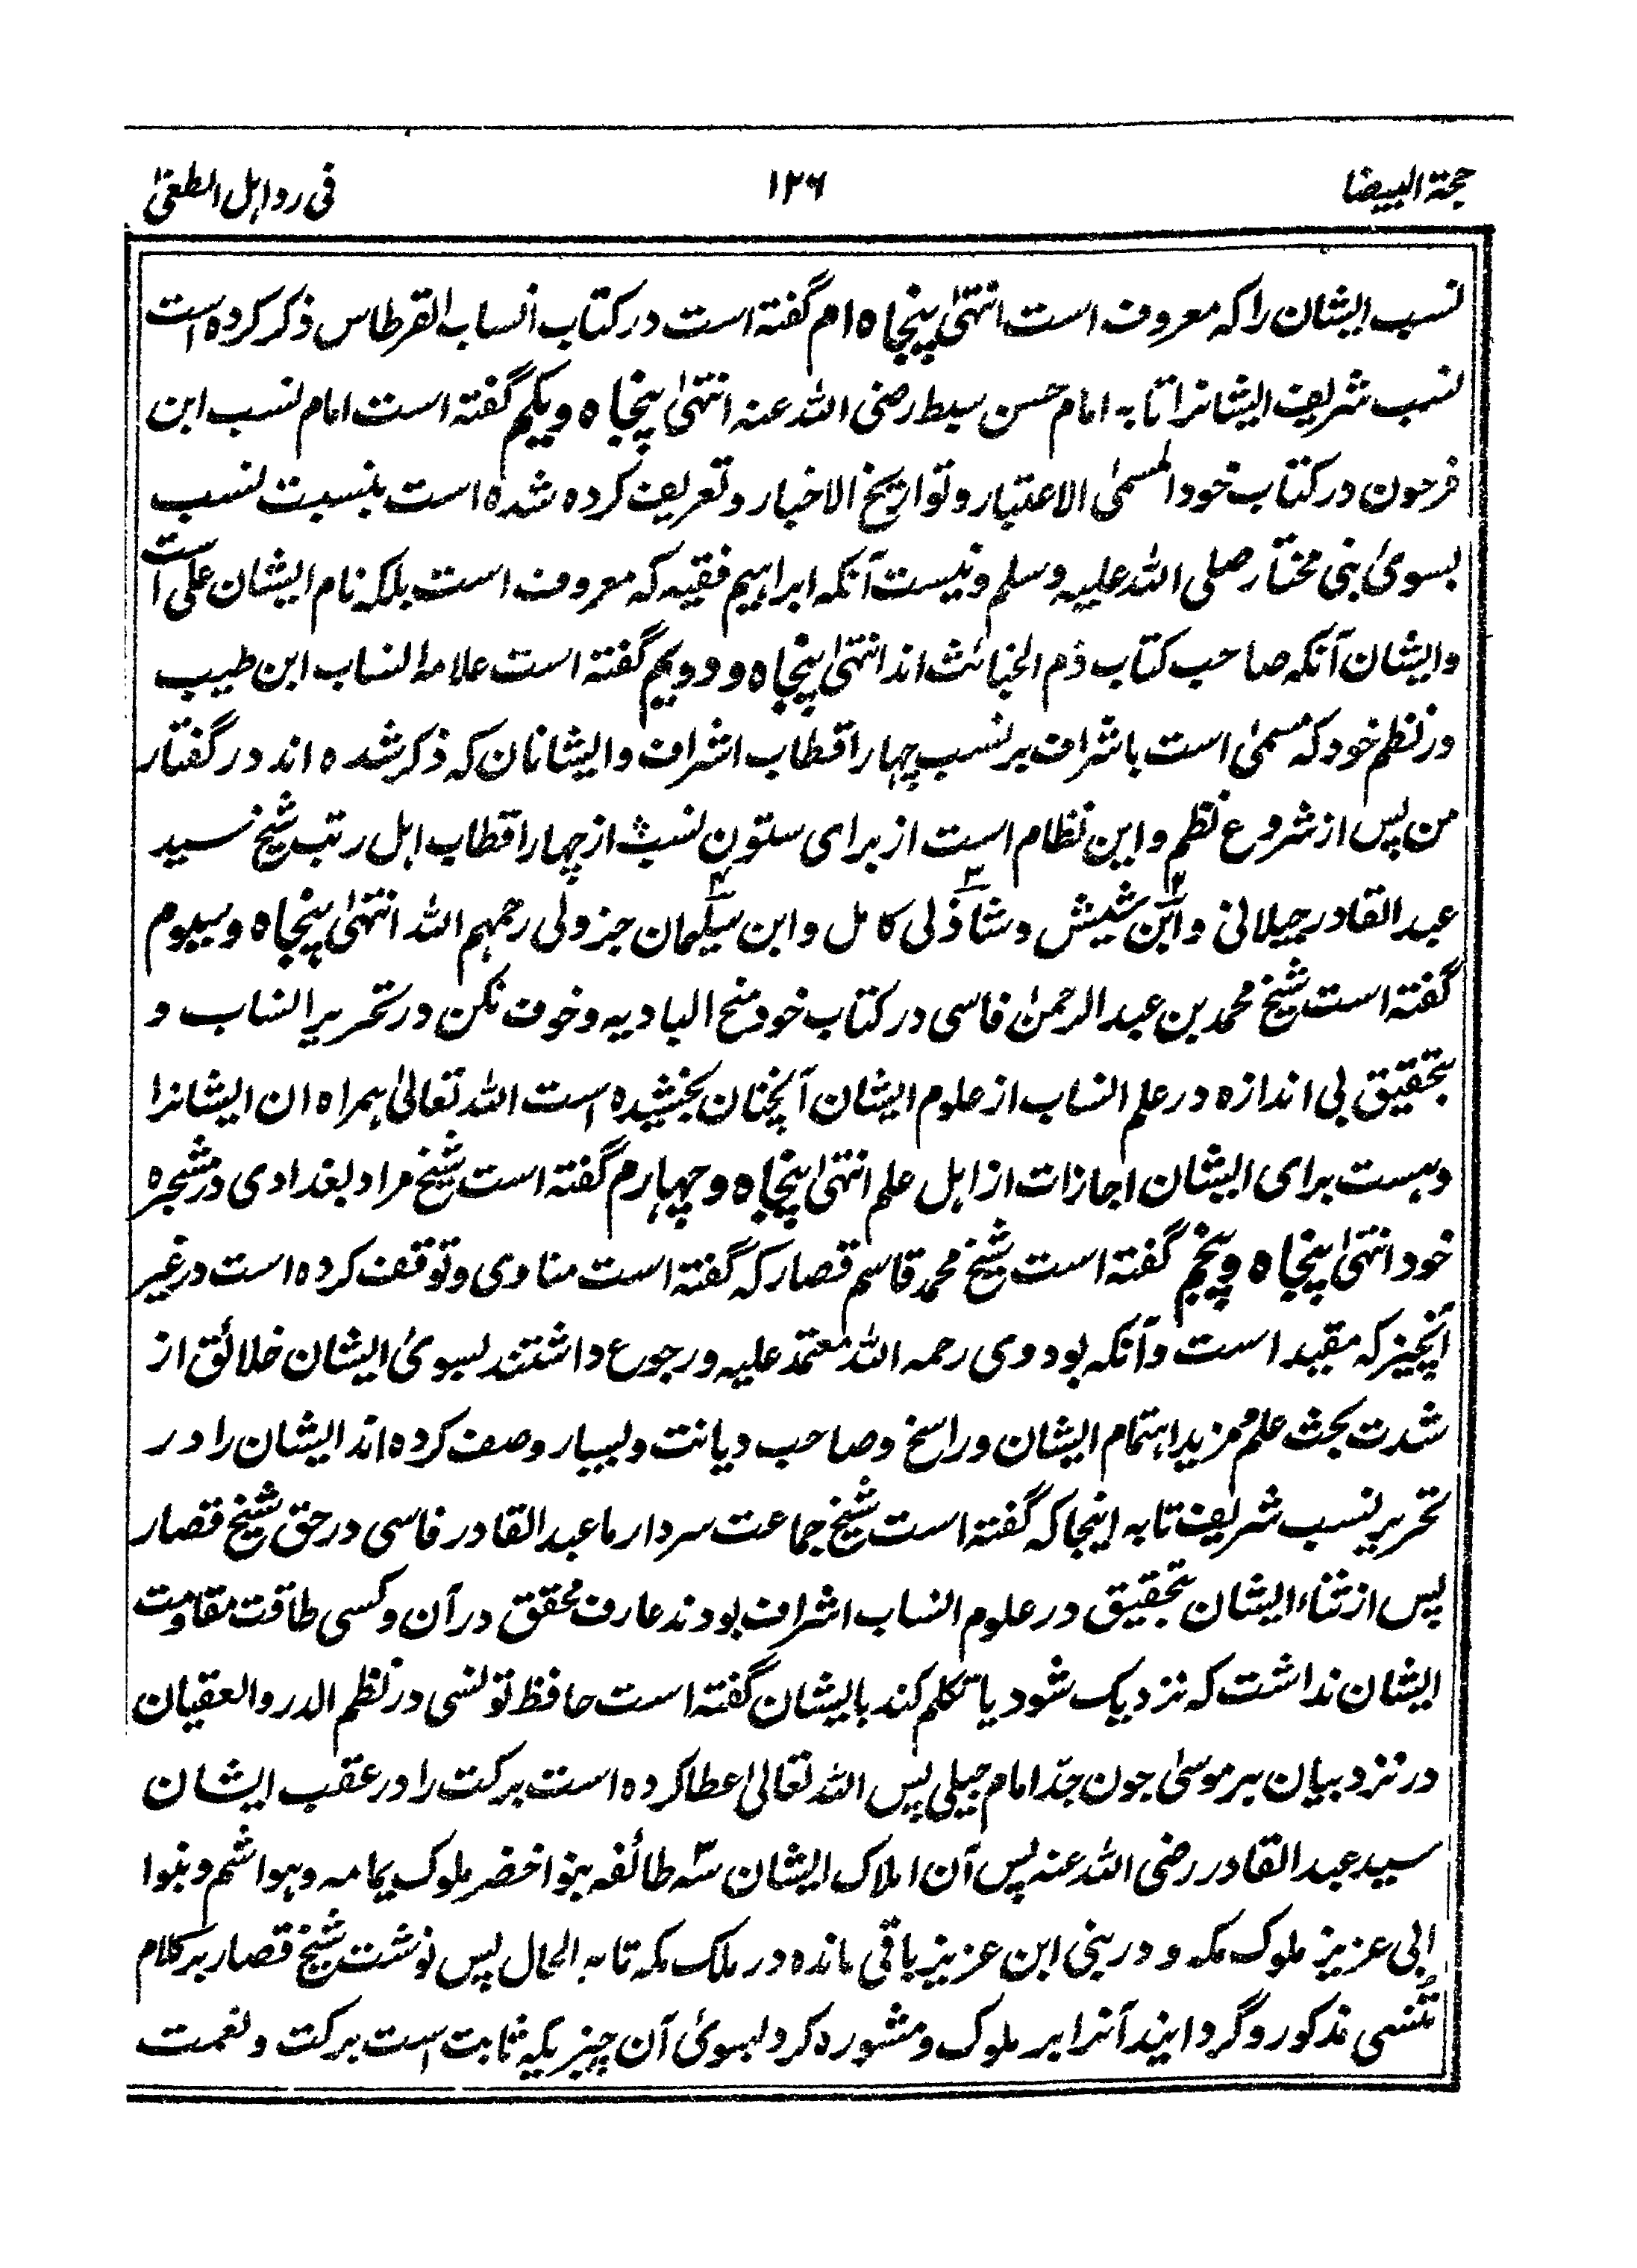 حجة البیضا ۱۲۶ فی رد اہل الطغیٰ
نسب ایشان را کہ معروف است انتہیٰ پنجاہ ام گفتہ است در کتاب انساب القرطاس ذکر کردہ است
نسب شریف ایشانرا تا بہ امام حسن سبط رضی اللہ عنہ انتہیٰ پنجاہ و یکم گفتہ است امام نسب ابن
فرحون در کتاب خود المسمیٰ الاعتبار و تواریخ الاخبار و تعریف کردہ شدہ است بنسبت نسب
بسویٔ نبی مختار صلی اللہ علیہ وسلم و نیست آنکہ ابراہیم فقیہ کہ معروف است بلکہ نام ایشان علی است
و ایشان آنکہ صاحب کتاب ذم الخبائث اند انتہیٰ پنجاہ و دویم گفتہ است علامہ النساب ابن طیب
در نظم خود کہ مسمیٰ است باشراف بر نسب چہار اقطاب اشراف و ایشانان کہ ذکر شدہ اند در گفتار
من پس از شروع نظم و این نظام است از برای ستون نسب از چہار اقطاب اہل رتب شیخ سید
عبد القادر جیلانی و ابن شیش و شاذلی کامل و ابن سلیمان جزولی رحمہم اللہ انتہیٰ پنجاہ و سیوم
گفتہ است شیخ محمد بن عبد الرحمٰن فاسی در کتاب خود منح البادیہ و خوف نکن در تحریر انساب و
بتحقیق بی اندازہ در علم انساب از علوم ایشان آنچنان بخشیدہ است اللہ تعالیٰ ہمراہ ان ایشانرا
و ہست برای ایشان اجازات از اہل علم انتہیٰ پنجاہ و چہارم گفتہ است شیخ مراد بغدادی در شجرہ
خود انتہیٰ پنجاہ و پنجم گفتہ است شیخ محمد قاسم قصار کہ گفتہ است مناوی و توقف کردہ است در غیر
آنچیز کہ مقید است و آنکہ بود وی رحمہ اللہ معتمد علیہ و رجوع داشتند بسویٔ ایشان خلائق از
شدت بحث علم و مزید اہتمام ایشان و راسخ و صاحب دیانت و بسیار وصف کردہ اند ایشان را در
تحریر نسب شریف تا بہ اینجا کہ گفتہ است شیخ جماعت سردار ما عبد القادر فاسی در حق شیخ قصار
پس از ثناء ایشان بتحقیق در علوم انساب اشراف بودند عارف محقق در آن و کسی طاقت مقاومت
ایشان نداشت کہ نزدیک شود یا تکلم کند بایشان گفتہ است حافظ تونسی در نظم الدر و العقیان
در نزد بیان بر موسیٰ جون جدّ امام جیلی پس اللہ تعالیٰ عطا کردہ است برکت را در عقب ایشان
سید عبد القادر رضی اللہ عنہ پس آن املاک ایشان سہ طائفہ بنوا خضر ملوک یمامہ و ہواشم و بنوا
ابی عزیز ملوک مکہ و در بنی ابن عزیز باقی ماندہ در ملک مکہ تا بہ الحال پس نوشت شیخ قصار بر کلام
تنسی مذکور و گردانید آنرا بر ملوک و مشورہ کرد بسویٔ آن چیزیکہ ثابت است برکت و نعمت